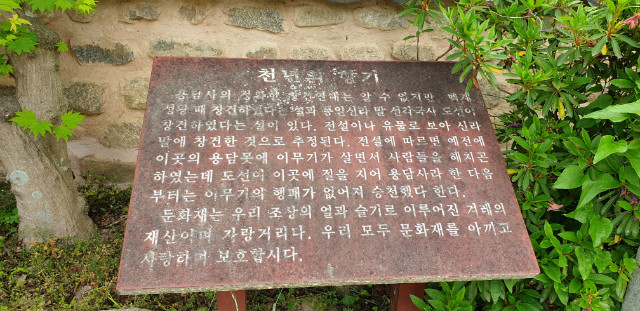 천년의 향기
용담사의 정확한 창건연대는 알 수 없지만 백제
성왕 때 창건하였다는 설과 통일신라 말 선각국사 도선이
창건하였다는 설이 있다. 전설이나 유물로 보아 신라
말에 창건한 것으로 추정된다. 전설에 따르면 예전에
이곳의 용담못에 이무기가 살면서 사람들을 해치곤
하였는데 도선이 이곳에 절을 지어 용담사라 한 다음
부터는 이무기의 행패가 없어져 승천했다 한다.
문화재는 우리 조상의 얼과 슬기로 이루어진 겨레의
재산이며 자랑거리다. 우리 모두 문화재를 아끼고
사랑하며 보호합시다.